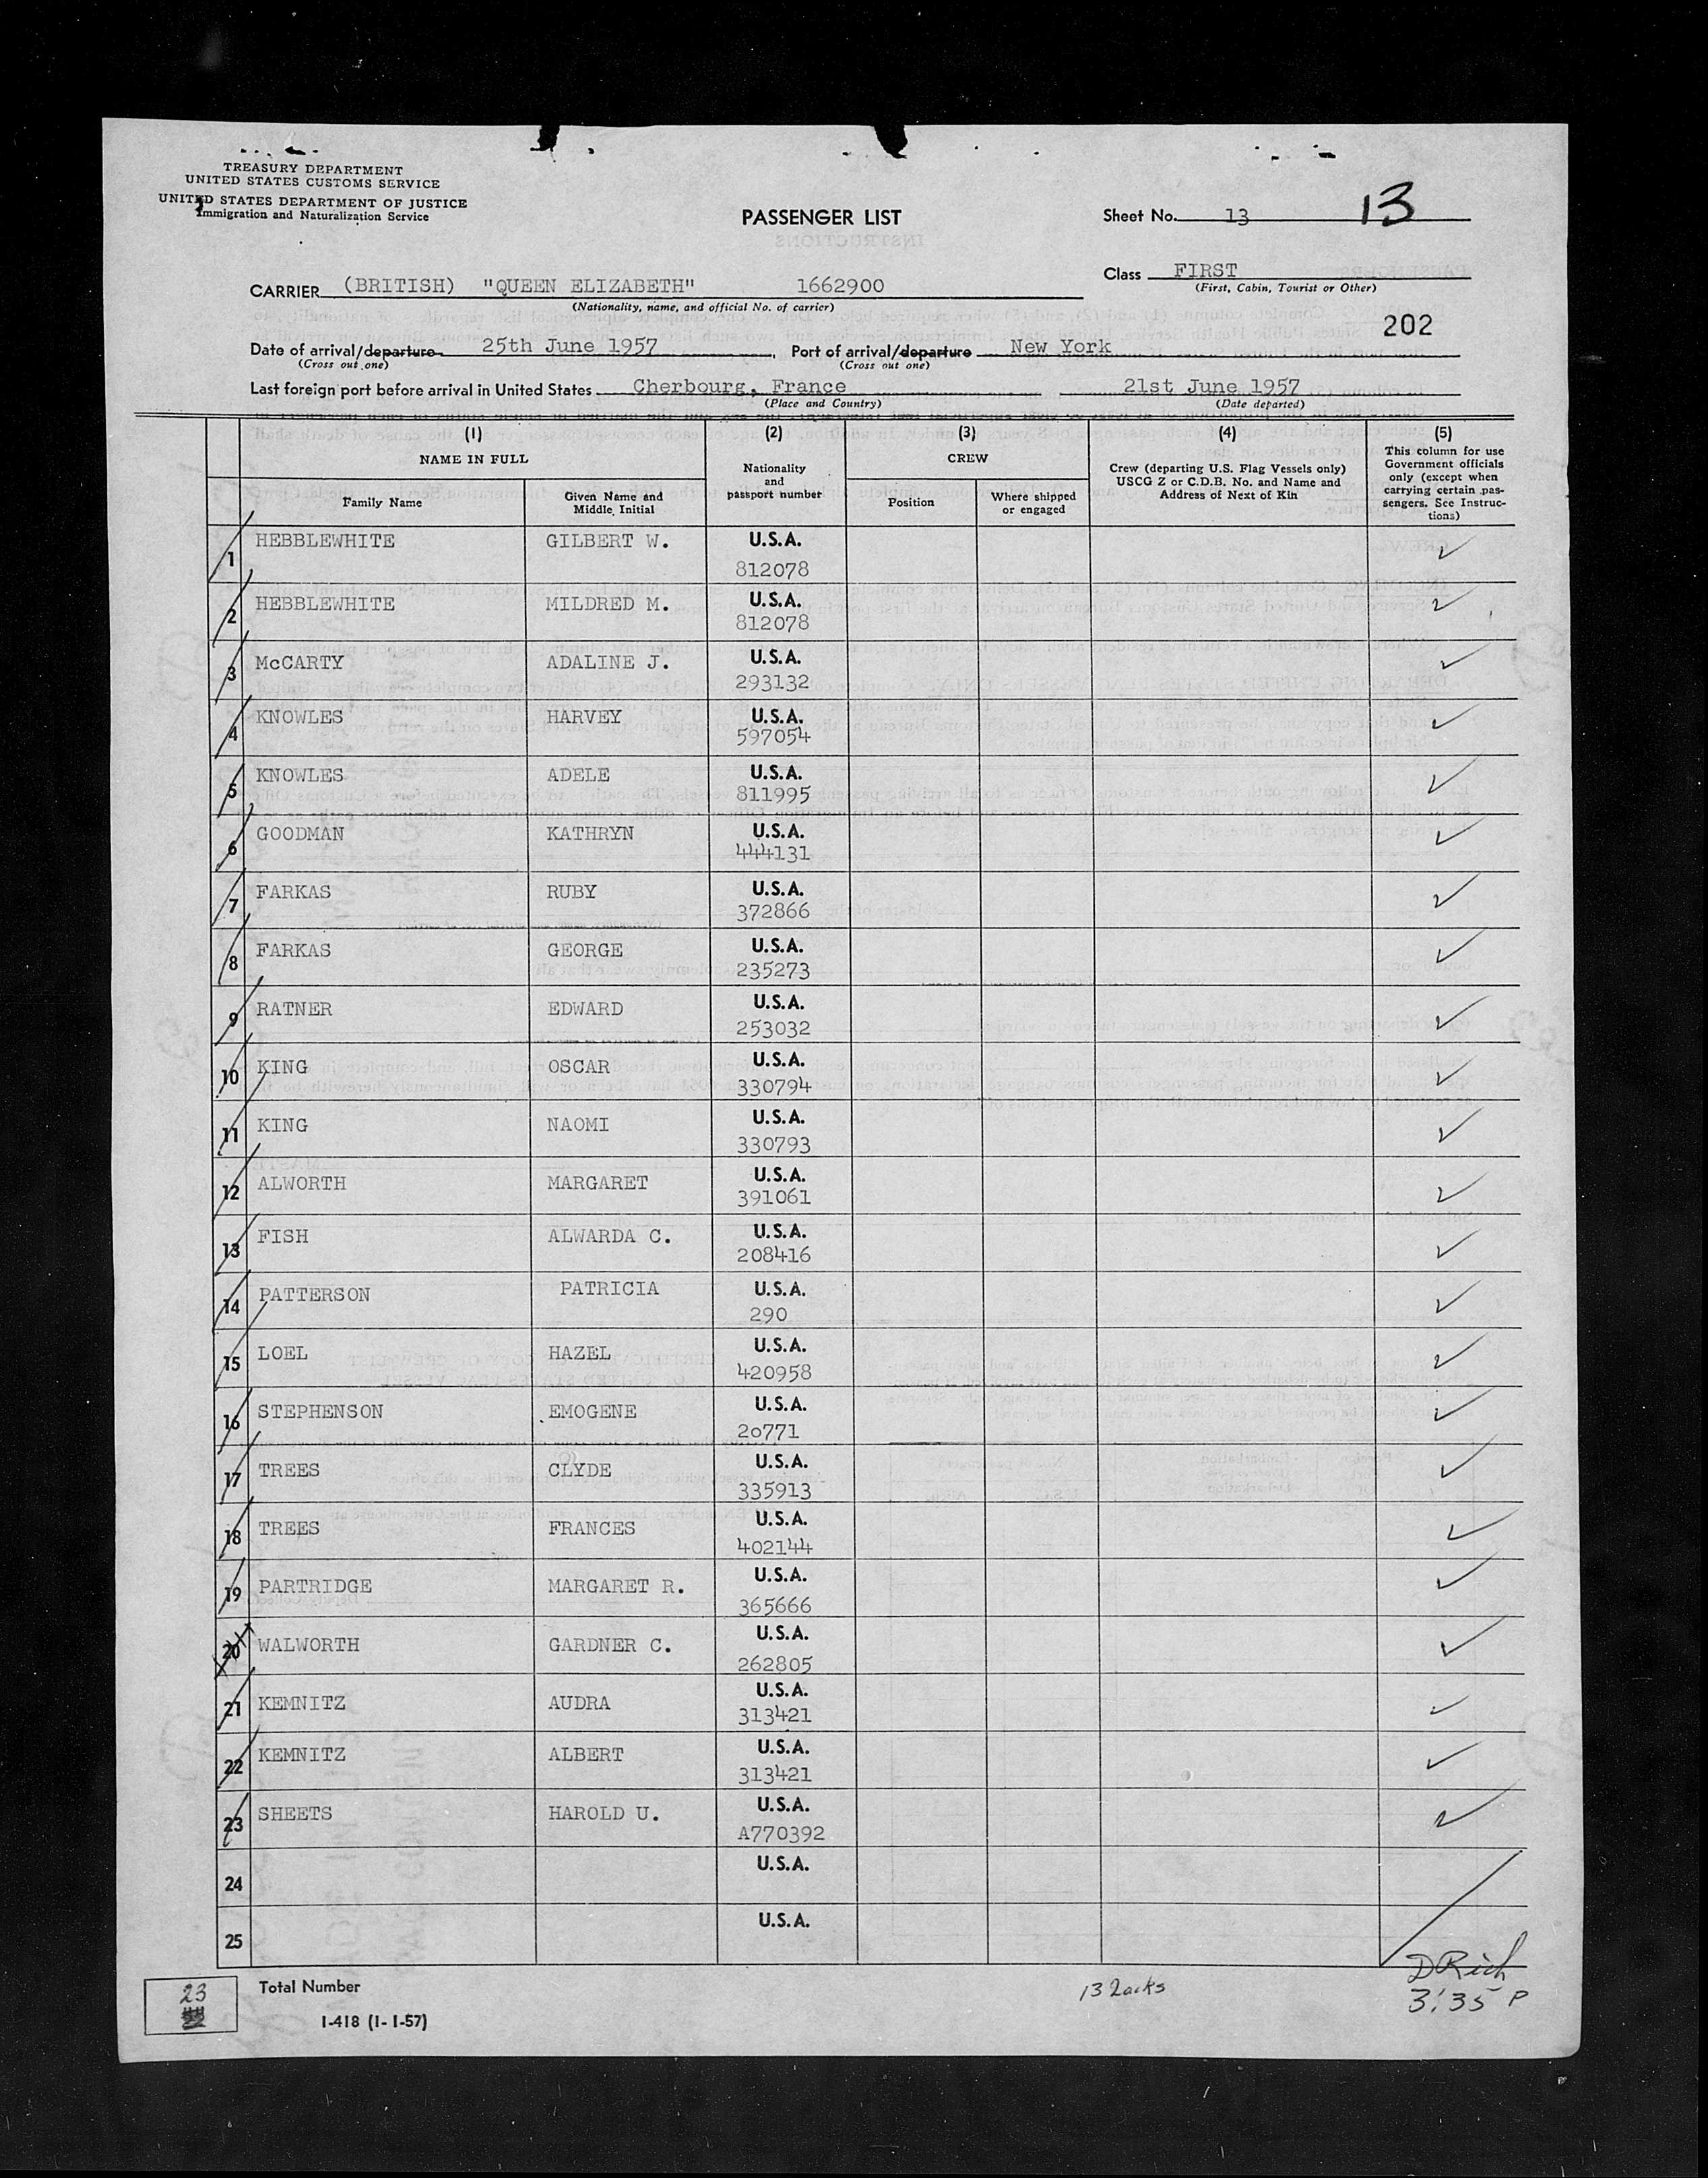 TREASURY DEPARTMENT
UNITED STATES CUSTOMS SERVICE
UNITED STATES DEPARTMENT OF JUSTICE
Immigration and Naturalization Service
PASSENGER LIST
Sheet No. 13 13
Class FIRST
(First, Cabin, Tourist or Other)
CARRIER (BRITISH) "QUEEN ELIZABETH" 1662900
(Nationality, name, and official No. of carrier)
202
Date of arrival/departure 25th June 1957, Port of arrival/departure New York
(Cross out one) (Cross out one)
Last foreign port before arrival in United States Cherbourg, France 21st June 1957
(Place and Country) (Date departed)
(1) (2) (3) (4) (5)
NAME IN FULL
Family Name
Given Name and Middle Initial
Nationality and passport number
CREW
Position
Where shipped or engaged
Crew (departing U.S. Flag Vessels only)
USCG Z or C.D.B. No. and Name and
Address of Next of Kin
This column for use
Government officials
only (except when
carrying certain pas-
sengers. See Instruc-
tions)
1 HEBBLEWHITE GILBERT W. U.S.A. 812078
2 HEBBLEWHITE MILDRED M. U.S.A. 812078
3 McCARTY ADALINE J. U.S.A. 293132
4 KNOWLES HARVEY U.S.A. 597054
5 KNOWLES ADELE U.S.A. 811995
6 GOODMAN KATHRYN U.S.A. 444131
7 FARKAS RUBY U.S.A. 372866
8 FARKAS GEORGE U.S.A. 235273
9 RATNER EDWARD U.S.A. 253032
10 KING OSCAR U.S.A. 330794
11 KING NAOMI U.S.A. 330793
12 ALWORTH MARGARET U.S.A. 391061
13 FISH ALWARDA C. U.S.A. 208416
14 PATTERSON PATRICIA U.S.A. 290
15 LOEL HAZEL U.S.A. 420958
16 STEPHENSON EMOGENE U.S.A. 20771
17 TREES CLYDE U.S.A. 335913
18 TREES FRANCES U.S.A. 402144
19 PARTRIDGE MARGARET R. U.S.A. 365666
20 WALWORTH GARDNER C. U.S.A. 262805
21 KEMNITZ AUDRA U.S.A. 313421
22 KEMNITZ ALBERT U.S.A. 313421
23 SHEETS HAROLD U. U.S.A. A770392
24 U.S.A.
25 U.S.A.
23
Total Number
13
DRich
3:35 P
I-418 (1-1-57)